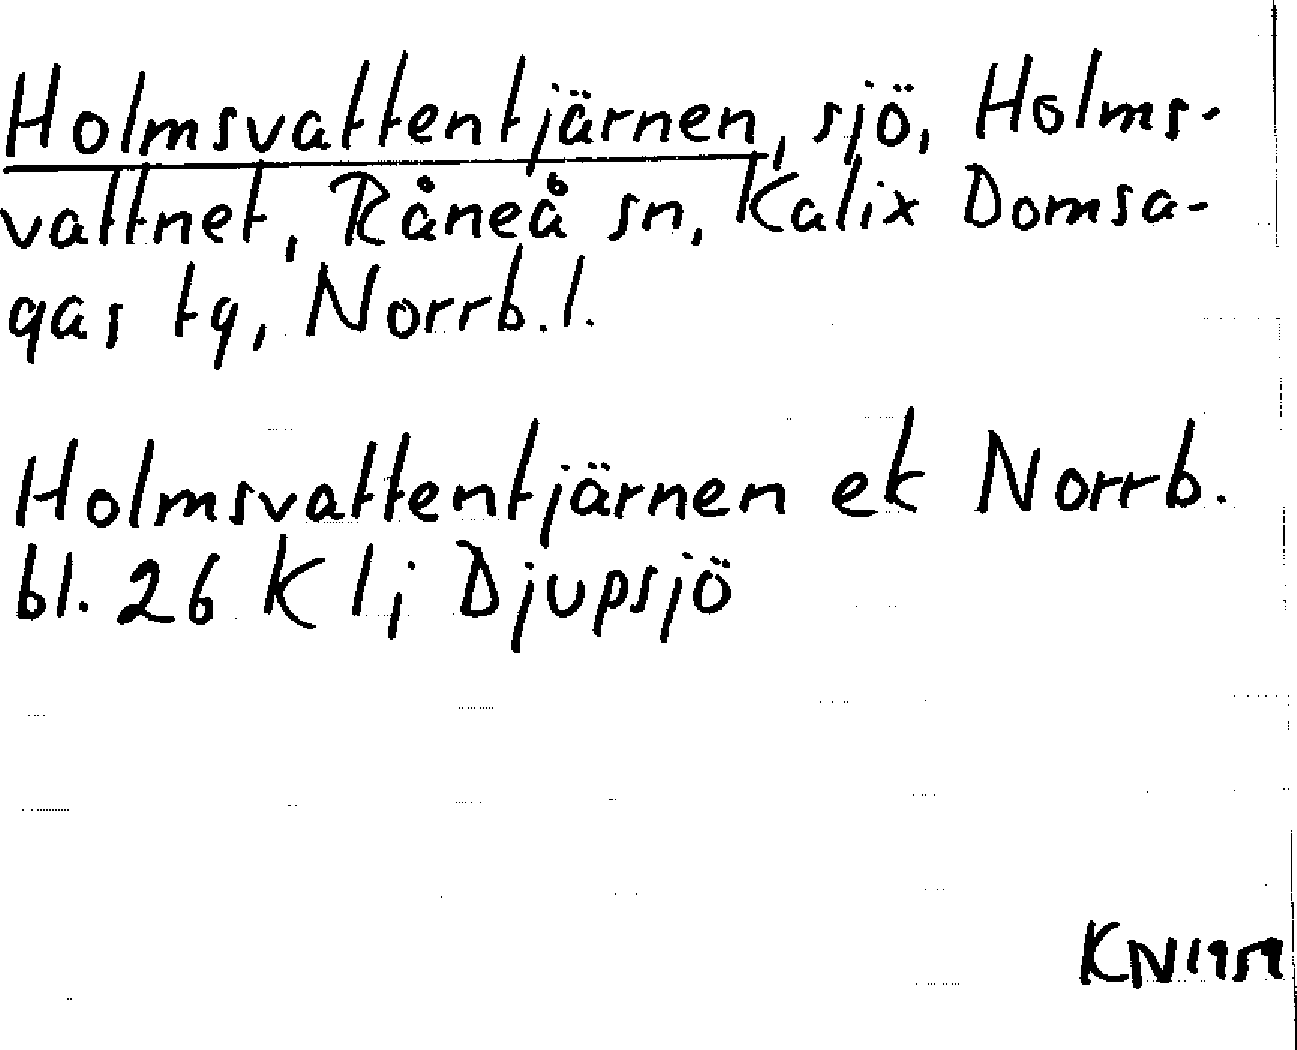 Holmsvattentjärnen, sjö, Holms-
vattnet, Råneå sn, Kalix Domsa-
gas tg, Norrb.l.
Holmsvattentjärnen ek Norrb.
bl. 26 K l; Djupsjö
KN 1959